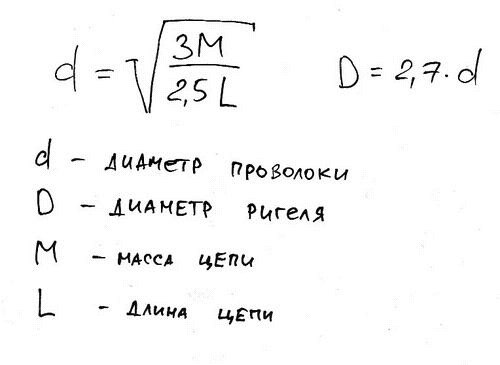 d = √(3M / 2,5 L) D = 2,7 · d
d – диаметр проволоки
D – диаметр ригеля
M – масса цепи
L – длина цепи